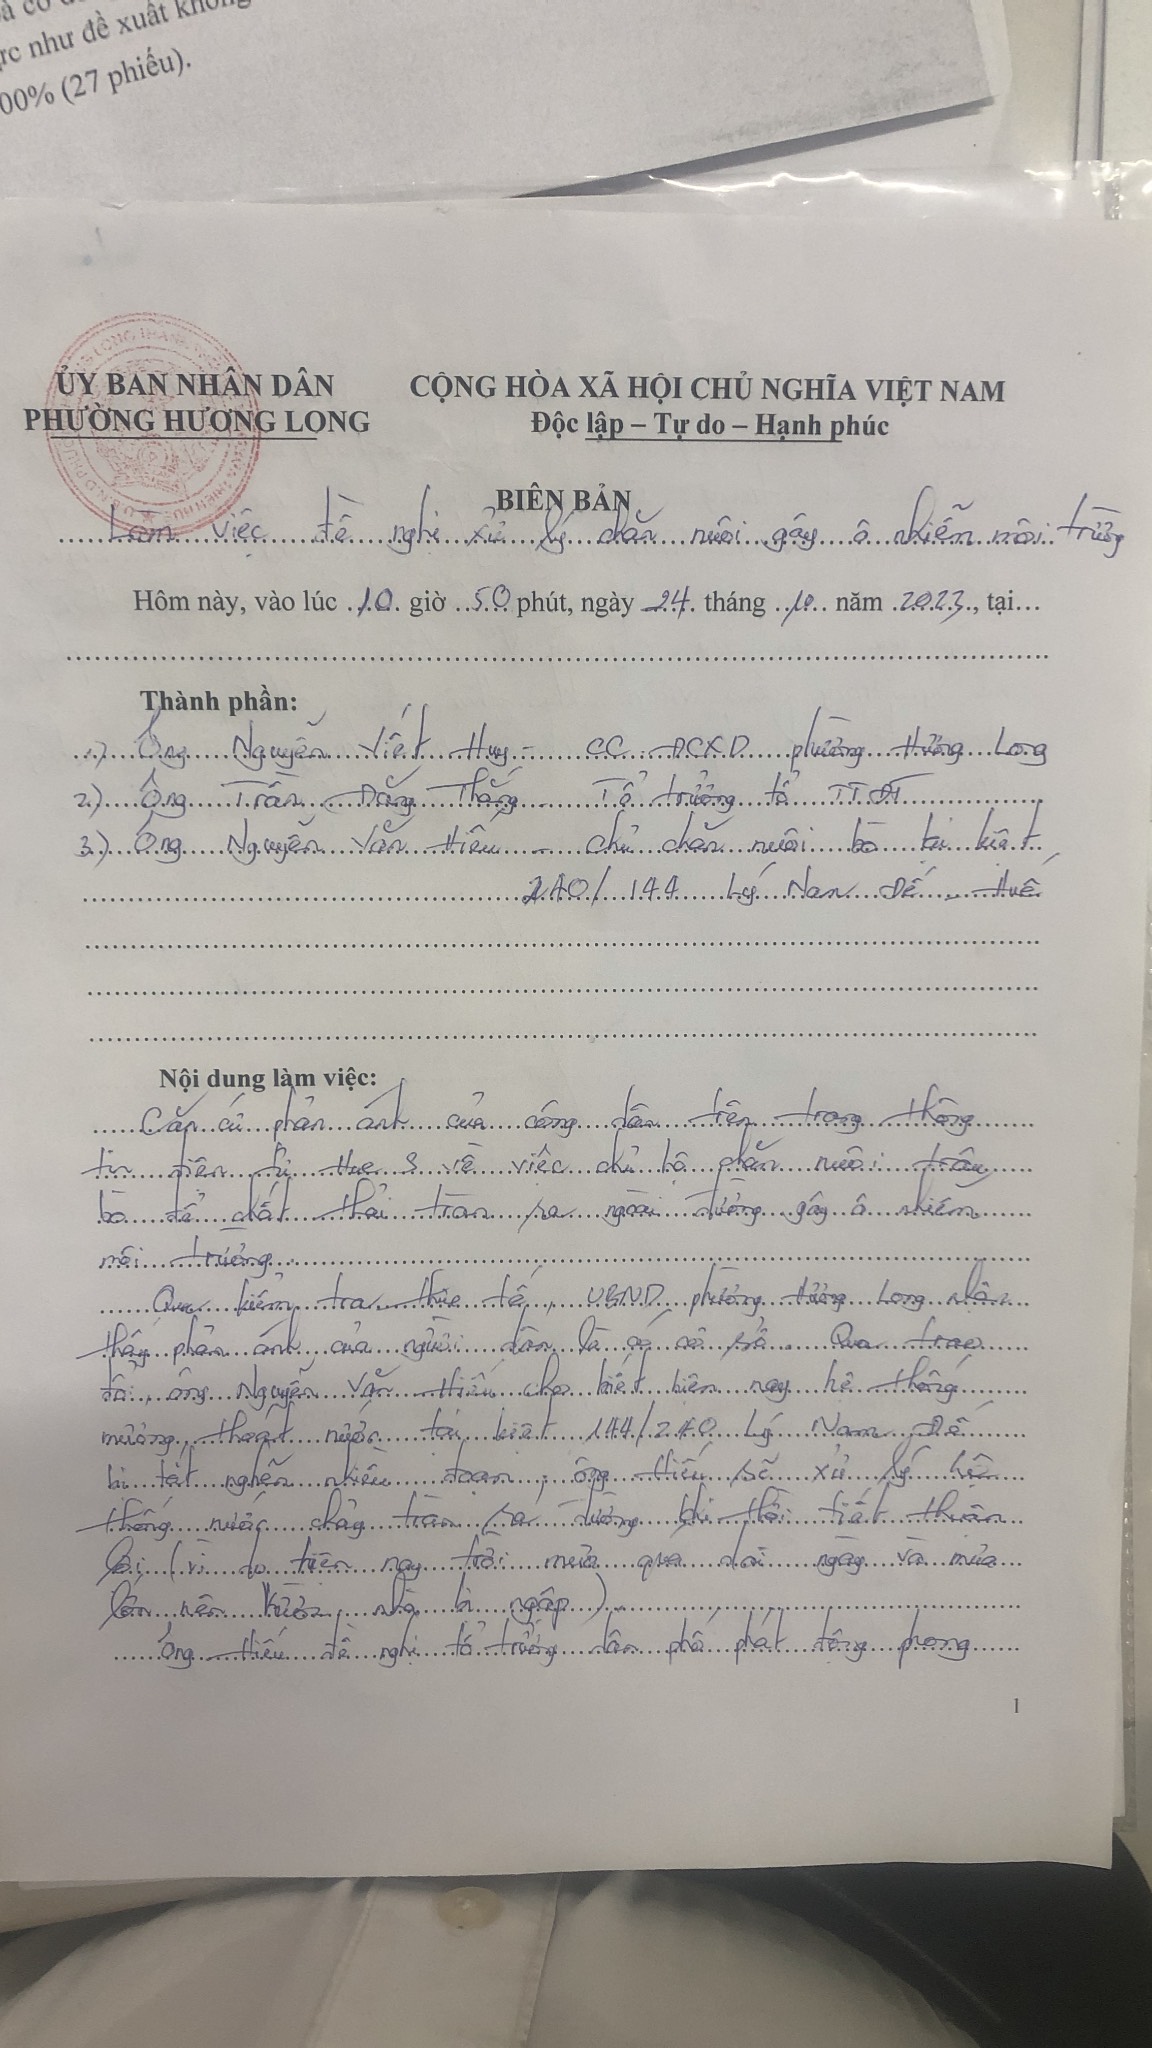 rc như đề xuất không
00% (27 phiếu).
ỦY BAN NHÂN DÂN
PHƯỜNG HƯƠNG LONG
CỘNG HÒA XÃ HỘI CHỦ NGHĨA VIỆT NAM
Độc lập – Tự do – Hạnh phúc
BIÊN BẢN
Làm việc đề nghị xử lý chăn nuôi gây ô nhiễm môi trường
Hôm này, vào lúc 10 giờ 50 phút, ngày 24 tháng 10 năm 2023, tại...
Thành phần:
1) Ông Nguyễn Viết Huy - CC ĐCXD phường Hương Long
2) Ông Trần Đăng Thắng Tổ trưởng tổ TTĐT
3) Ông Nguyễn Văn Hiếu - chủ chăn nuôi bò tại kiệt
240/144 Lý Nam Đế, Huế
Nội dung làm việc:
Căn cứ phản ánh của công dân trên trang thông
tin điện tử Hue S về việc chủ hộ chăn nuôi trâu
bò để chất thải tràn ra ngoài đường gây ô nhiễm
môi trường.
Qua kiểm tra thực tế, UBND phường Hương Long nhận
thấy phản ánh của người dân là có cơ sở. Qua trao
đổi, ông Nguyễn Văn Hiếu cho biết hiện nay hệ thống
mương thoát nước tại kiệt 144/240 Lý Nam Đế
bị tắt nghẽn nhiều đoạn, ông Hiếu sẽ xử lý hệ
thống nước chảy tràn ra đường khi thời tiết thuận
lợi (vì do hiện nay trời mưa qua dài ngày và mưa
lớn nên vườn, nhà bị ngập).
Ông Hiếu đề nghị tổ trưởng dân phố phát động phong
1